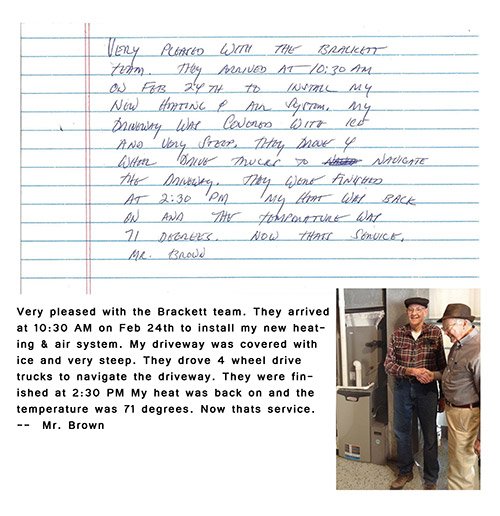 VERY PLEASED WITH THE BRACKETT
TEAM. THEY ARRIVED AT 10:30 AM
ON FEB 24TH TO INSTALL MY
NEW HEATING & AIR SYSTEM. MY
DRIVEWAY WAS COVERED WITH ICE
AND VERY STEEP. THEY DROVE 4
WHEEL DRIVE TRUCKS TO NAVIGATE
THE DRIVEWAY. THEY WERE FINISHED
AT 2:30 PM MY HEAT WAS BACK
ON AND THE TEMPERATURE WAS
71 DEGREES. NOW THATS SERVICE.
MR. BROWN
Very pleased with the Brackett team. They arrived
at 10:30 AM on Feb 24th to install my new heat-
ing & air system. My driveway was covered with
ice and very steep. They drove 4 wheel drive
trucks to navigate the driveway. They were fin-
ished at 2:30 PM My heat was back on and the
temperature was 71 degrees. Now thats service.
-- Mr. Brown